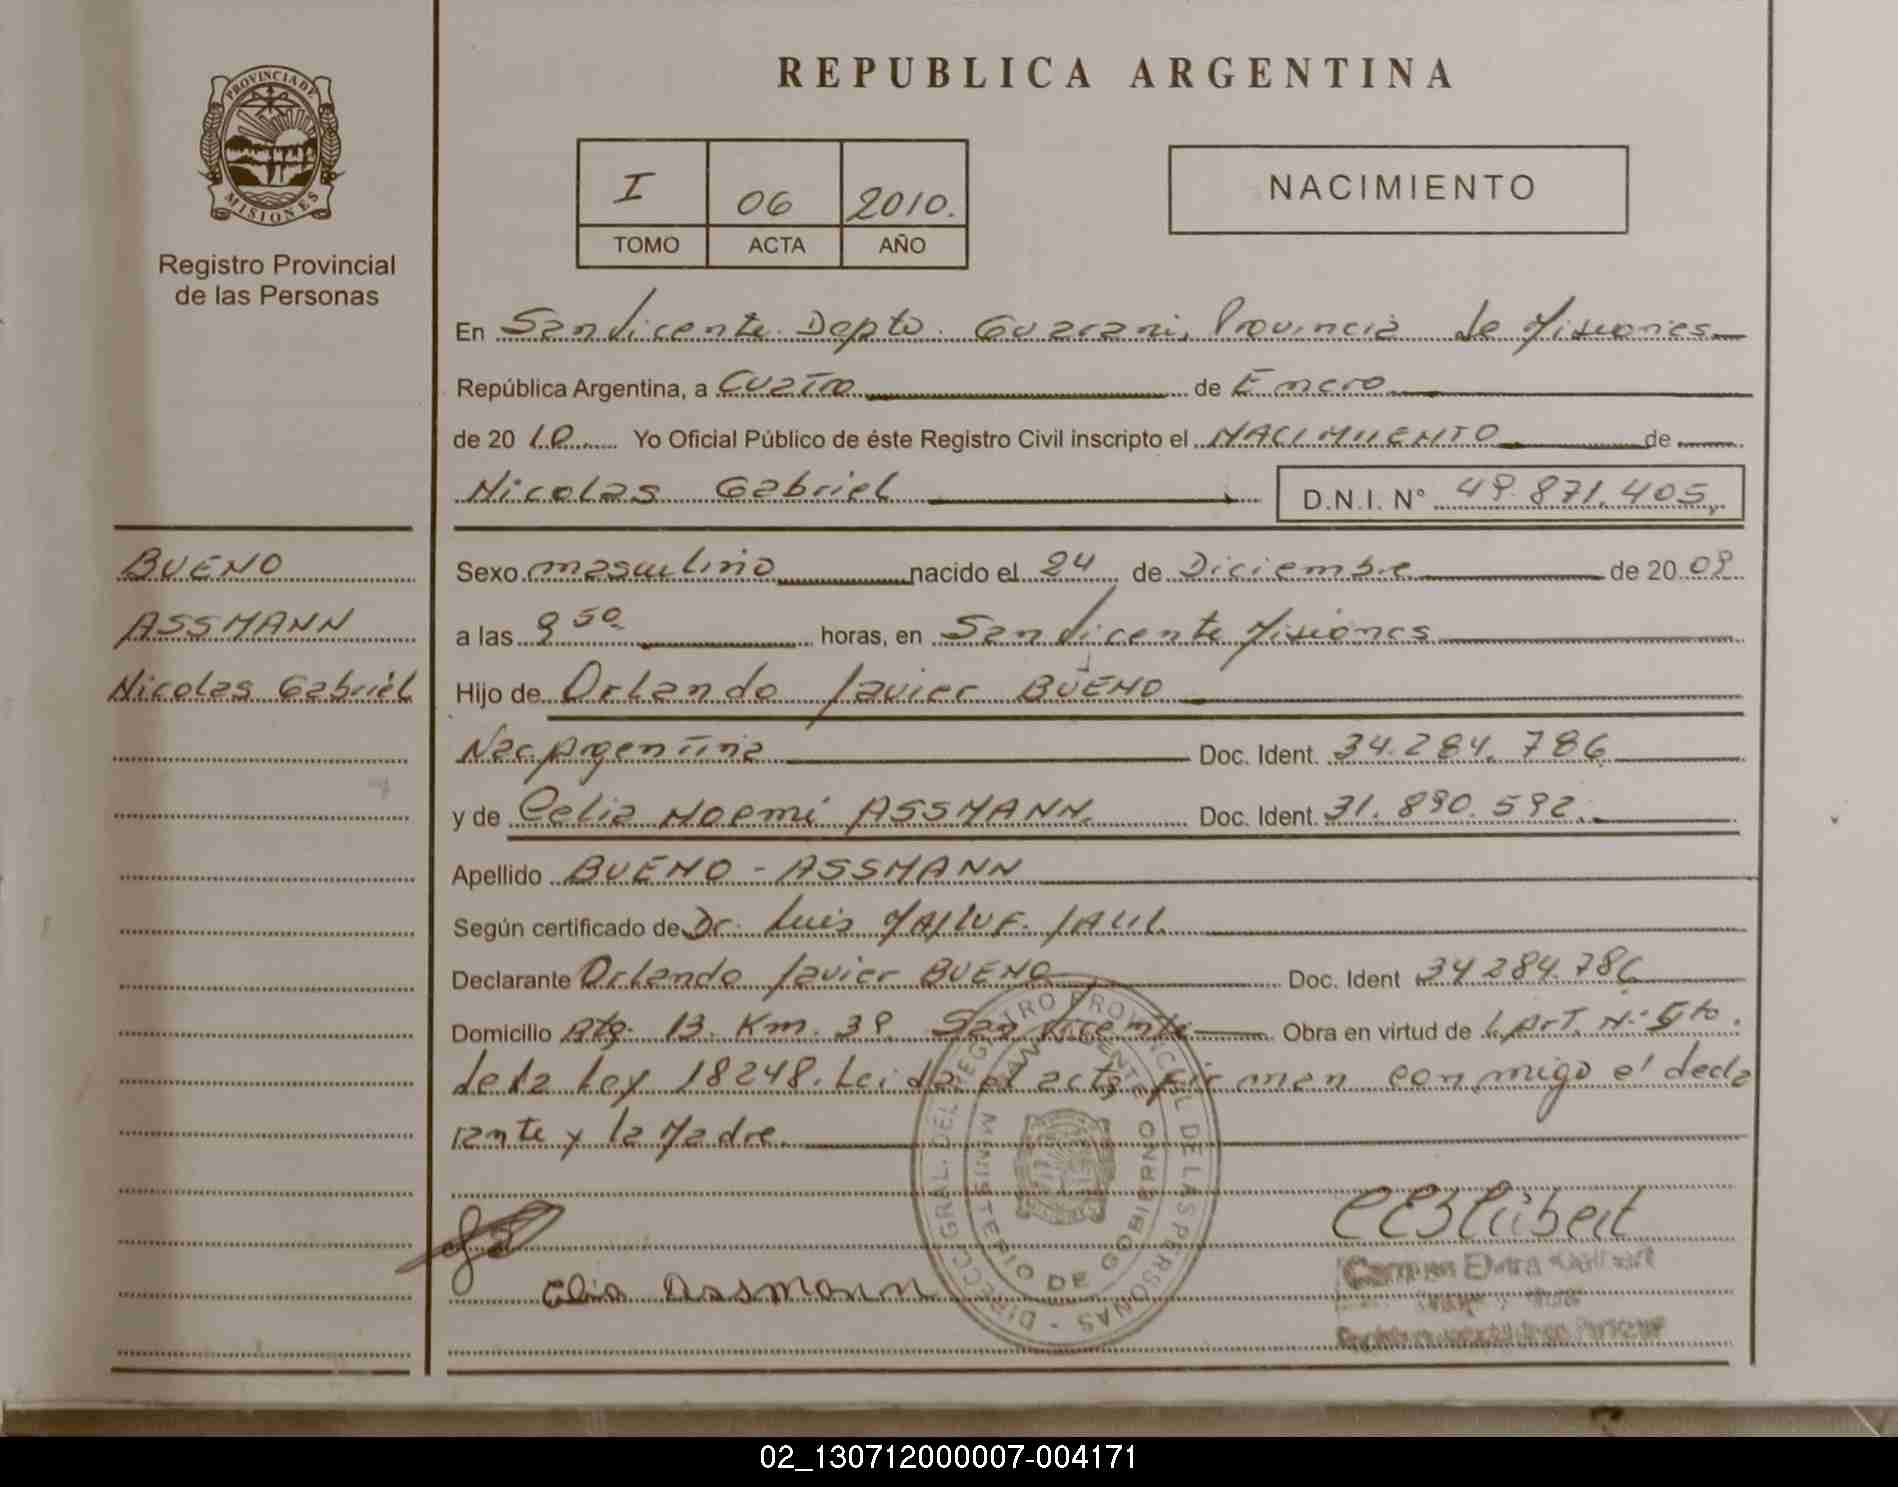 PROVINCIA DE
MISIONES
Registro Provincial
de las Personas
REPUBLICA ARGENTINA
I 06 2010.
TOMO ACTA AÑO
NACIMIENTO
En San Vicente. Dopto. Guarani, Provincia de Misiones
República Argentina, a Cuatro de Enero
de 20 10 Yo Oficial Público de éste Registro Civil inscripto el NACIMIENTO de
Nicolas Gabriel D.N.I. N° 49.871.405
BUENO
ASSMANN
Nicolas Gabriel
Sexo masculino nacido el 24 de Diciembre de 20 09
a las 9 50 horas, en San Vicente Misiones
Hijo de Orlando Javier BUENO
Nac. Argentina Doc. Ident. 34.284.786
y de Celia Noemi ASSMANN. Doc. Ident. 31.890.592.
Apellido BUENO - ASSMANN
Según certificado de Dr. Luis
Declarante Orlando Javier BUENO Doc. Ident 34 284.786
Domicilio Rta. 13. Km. 39 San Vicente Obra en virtud de L. Art. N° 5to.
de la Ley 18248. Leida el acta firman conmigo el decla
rante y la Madre.
DIRECC. GRAL. DEL REGISTRO PROVINCIAL DE LAS PERSONAS -
SAN VICENTE
MINISTERIO DE GOBIERNO
Celia Assmann
02_130712000007-004171